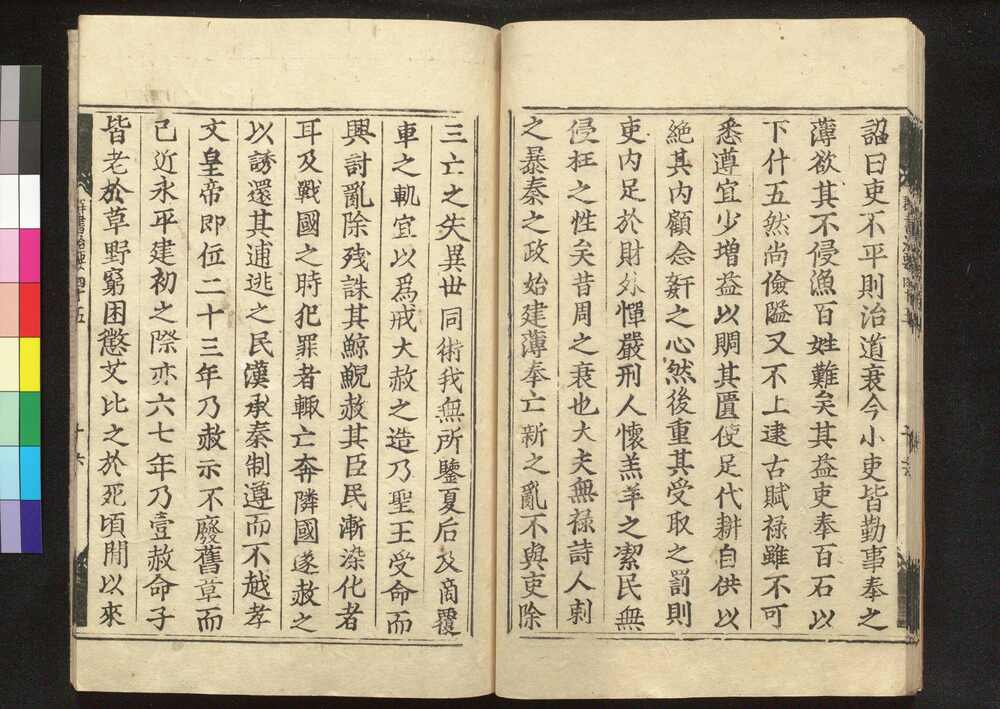 詔曰吏不平則治道衰今小吏皆勤事奉之
薄欲其不侵漁百姓難矣其益吏奉百石以
下什五然尚儉隘又不上逮古賦禄雖不可
悉遵宜少增益以賙其匱使足代耕自供以
絶其内顧念姧之心然後重其受取之罰則
吏内足於財外憚嚴刑人懷羔羊之潔民無
侵枉之性矣昔周之衰也大夫無禄詩人刺
之暴秦之政始建薄奉亡新之亂不與吏除
三亡之失異世同術我無所鑒夏后及商覆
車之軌宜以爲戒大赦之造乃聖王受命而
興討亂除殘誅其鯨鯢赦其臣民漸染化者
耳及戰國之時犯罪者輙亡奔隣國遂赦之
以誘還其逋逃之民漢承秦制遵而不越孝
文皇帝即位二十三年乃赦示不廢舊草而
已近永平建初之際亦六七年乃壹赦命子
皆老於草野窮困懲艾比之於死頃間以來
群書治要四十五
十六